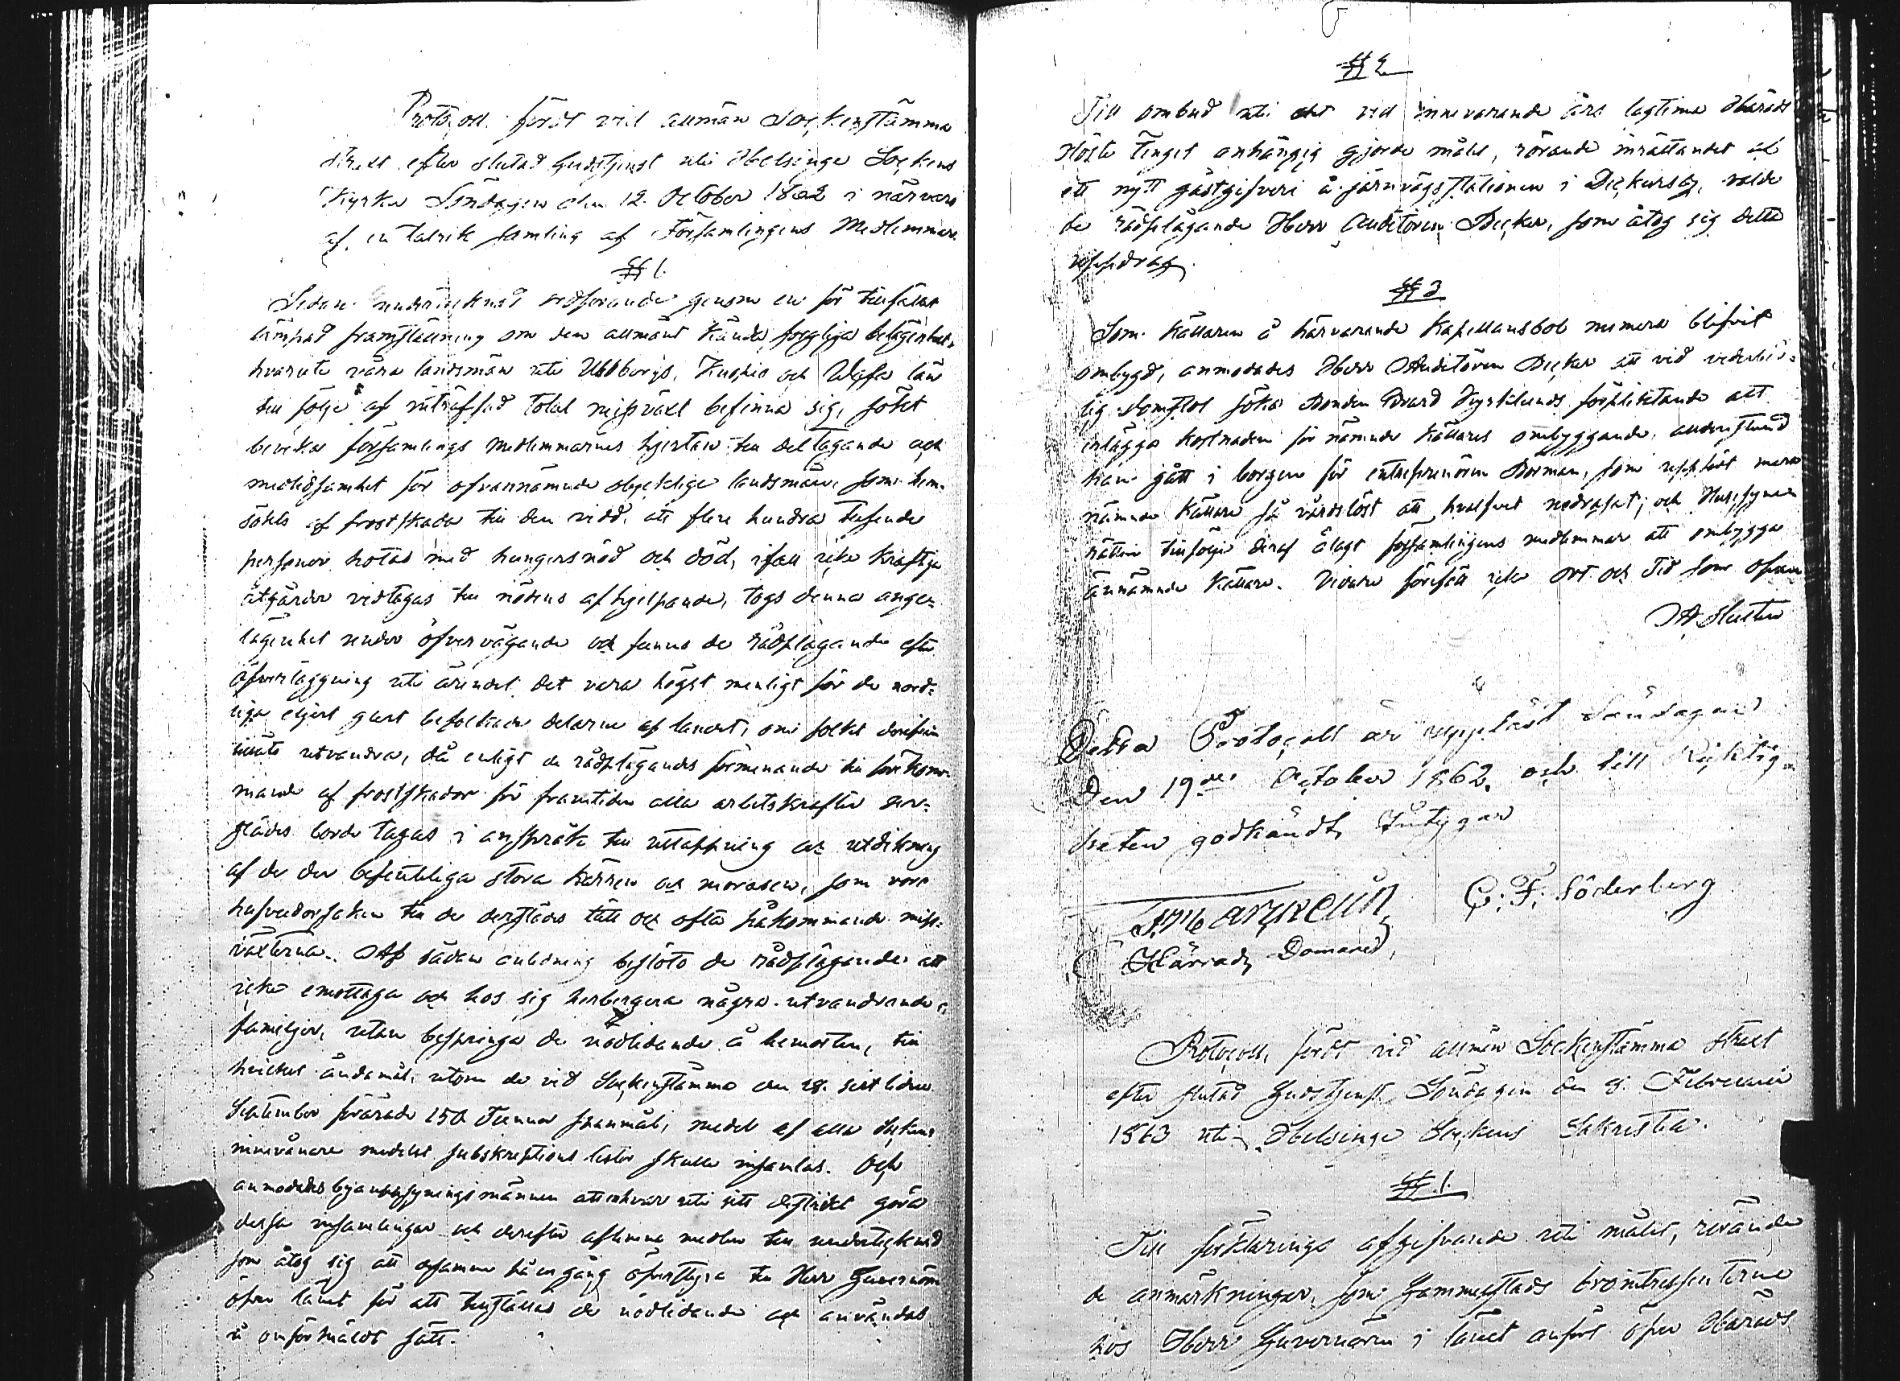 Protocoll fördt vid allmän Sockenstämma
strax efter slutad Gudstjenst uti Helsinge Sockens
Kyrka Söndagen den 12. October 1862 i närvaro
af en talrik samling af Församlingens Medlemmar.
§ 1.
Sedan undertecknad ordförande genom en för tillfället
lämpad framställning om den allmänt kända sorgliga belägenhet,
hvaruti våra landsmän uti Uleåborgs, Kuopio och Wasa län
till följe af inträffad total missväxt befinna sig, sökt
beveka församlings medlemmarnes hjertan till deltagande och
medlidsamhet för ofvannämnde olycklige landsmän, som hem-
sökts af frostskada till den vidd, att flere hundra tusende
personer hotas med hungersnöd och död, ifall icke kraftiga
åtgärder vidtagas till nödens afhjelpande, togs denna ange-
lägenhet under öfvervägande och funno de rådplägande efter
öfverläggning uti ärendet det vara högst menligt för de nord-
liga eljest glest befolkade delarne af landet, om folket derifrån
finge utvandra, då enligt de rådplägandes förmenande till förekom-
mande af frostskador för framtiden alla arbetskrafter der-
städes borde tagas i anspråk till uttappning och utdikning
af de der befintliga stora kärren och morasen, som vore
hufvudorsaken till de derstädes tätt och ofta påkommande miss-
växterna. Af sådan anledning beslöto de rådplägande att
icke emottaga och hos sig herbergera några utvandrande
familjer, utan bespringa de nödlidande å hemorten, till
hvilket ändamål, utom de vid Sockenstämma den 28. sistlidne
September förärade 150 Tunnor spanmål, medel af alla Sockens
innevånare medelst subskriptions listor skulle insamlas. Och
anmodades byauppsyningsmännen att enhvar uti sitt distrikt göra
dessa insamlingar och derefter aflemna medlen till undertecknad
som åtog sig att desamma på en gång öfverstyra till Herr Guvernören
öfver länet för att tillställas de nödlidande och användas
å omförmäldt sätt.
§ 2
Till ombud uti det vid innevarande års lagtima Härads
Höste Tinget anhängig gjorde målet, rörande inrättandet af
ett nytt gästgifveri å järnvägsstationen i Dickursby, valde
de rådplägande Herr Auditören Decker, som åtog sig detta
uppdrag.
§ 3
Som källaren å härvarande Kapellansbol numera blifvit
ombygd, anmodades Herr Auditören Decker att vid vederbör-
lig domstol söka Bonden Brard Dyrklunds förpliktande att
erlägga kostnaden för nämnde källares ombyggande, alldenstund
han gått i borgen för entreprenören Borman, som uppfört mera-
nämnde källare så vårdslöst att hvalfvet nedrasat; och Husesyns
rätten tillfölje deraf ålagt församlingens medlemmar att ombygga
ännämnde källare. Vidare förefall icke Ort och Tid som ofvan
A. Hulten
Detta Protocoll är uppläst Söndagen
Den 19de October 1862. och till Riktig-
heten godkändt, Intygar
C. F. Söderberg
Härrads Domared,
Protocoll, fördt vid allmän Sockenstämma strax
efter slutad Gudstjenst Söndagen den 8. Februari
1863 uti Helsinge Sockens Sakristia.
§ 1.
Till förklarings afgifvande uti målet, rörande
de anmärkningar, som Gammelstads brointressenterne
hos Herr Guvernören i länet anfört öfver Härads